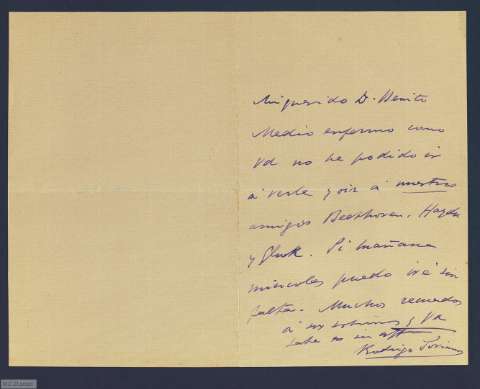 Mi querido D. Benito
Medio enfermo como
Vd no he podido ir
á verle y oir á nuestros
amigos Beethoven, Haydn
y Gluk. Si mañana
miercoles puedo iré sin
falta. Muchos recuerdos
á sus sobrinos y Vd
sabe es su
Rodrigo Soriano